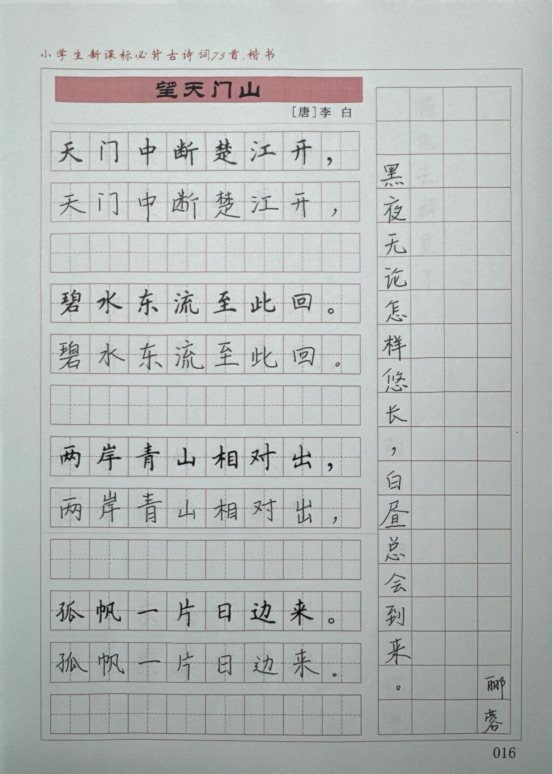 小学生新课标必背古诗词75首.楷书
望天门山
[唐]李 白
天门中断楚江开，
天门中断楚江开，
碧水东流至此回。
碧水东流至此回。
两岸青山相对出，
两岸青山相对出，
孤帆一片日边来。
孤帆一片日边来。
黑夜无论怎样悠长，白昼总会到来。
郦蓉
016